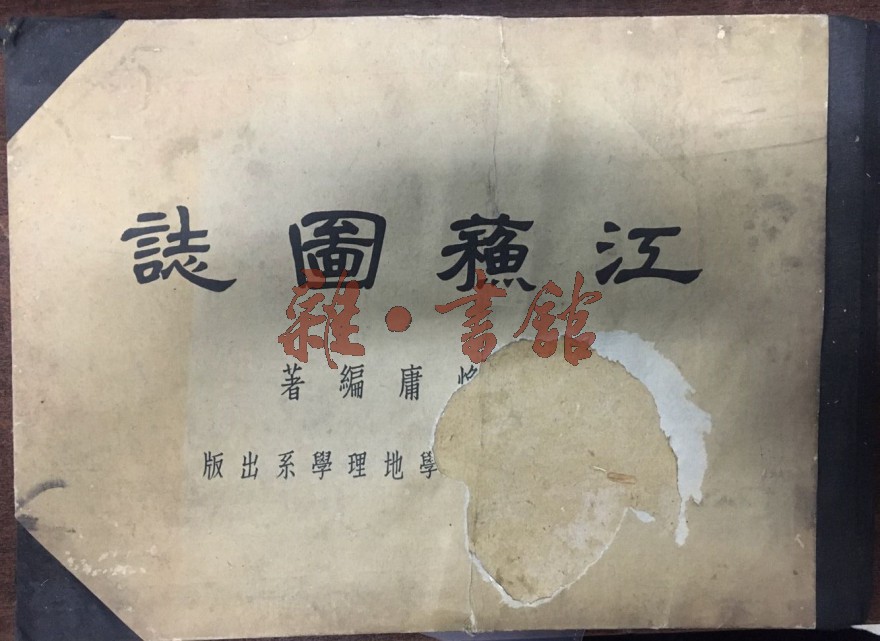 江蘓圖誌
雜·書館
庸編著
學地理學系出版